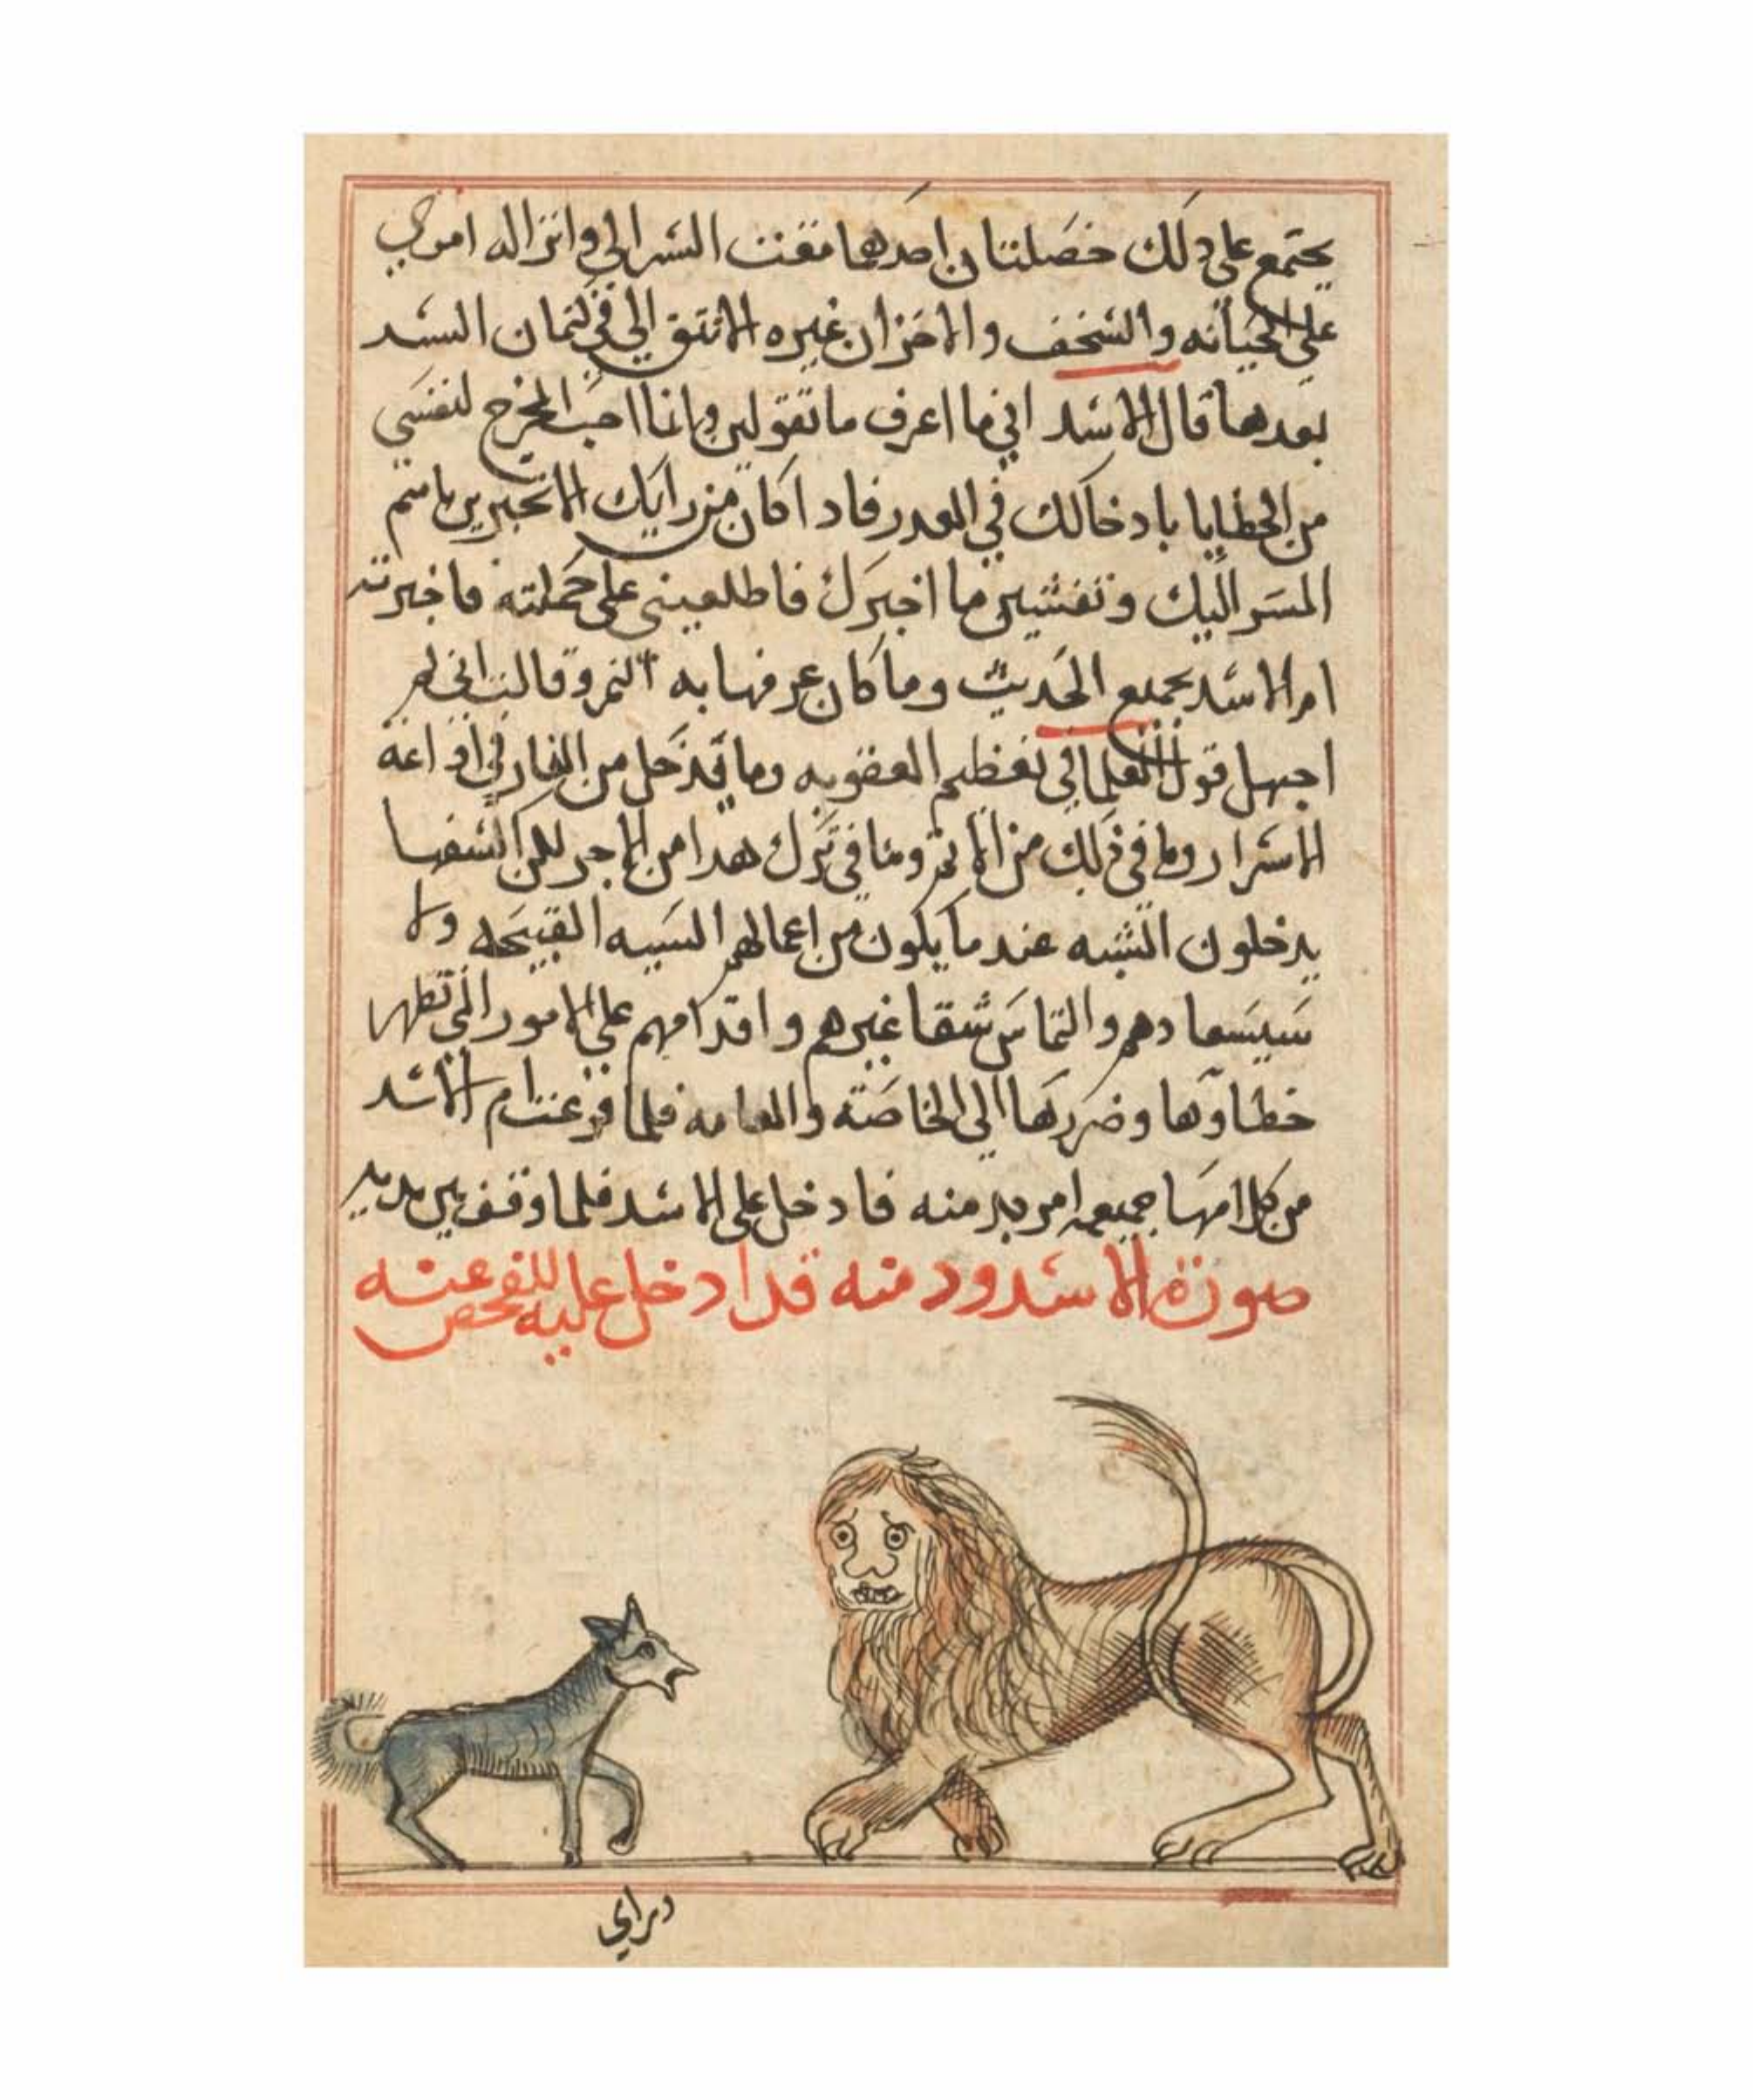 يجتمع على دلك خصلتان احدهما مقت السر الي وانزاله اموري
على الخيانه والسخف والاخران غيره لا تثق الي في كتمان السر
بعدها قال الاسد اني ما اعرف ما تقولين وانما احب المخرج لنفسي
من الخطايا بادخالك في العدر فاد اكان من رايك الا تخبرين باسم
المسر اليك وتفشين ما اخبرك فاطلعيني على حملته فاخبرت
ام الاسد بجميع الحديث وما كان عرفها به النمر وقالت اني لم
اجهل قول العلما في تعظيم العقوبه وما يدخل من العار في اداعة
الاسرار وما في ذلك من الاثم وما في ترك هدا من الاجر لكن السفها
يدخلون الشبه عند ما يكون من اعمالهم السيه القبيحه ولا
والتماس شقا غيرهم واقدامهم على الامور التي تظهر
خطاوها وضررها الى الخاصته والعامه فلما فرغت ام الاسد
من كلامها جميعه امر بدمنه فادخل على الاسد فلما وقف بين يديه
صورة الاسد ودمنه قد ادخل عليه للفحص عنه
وراي